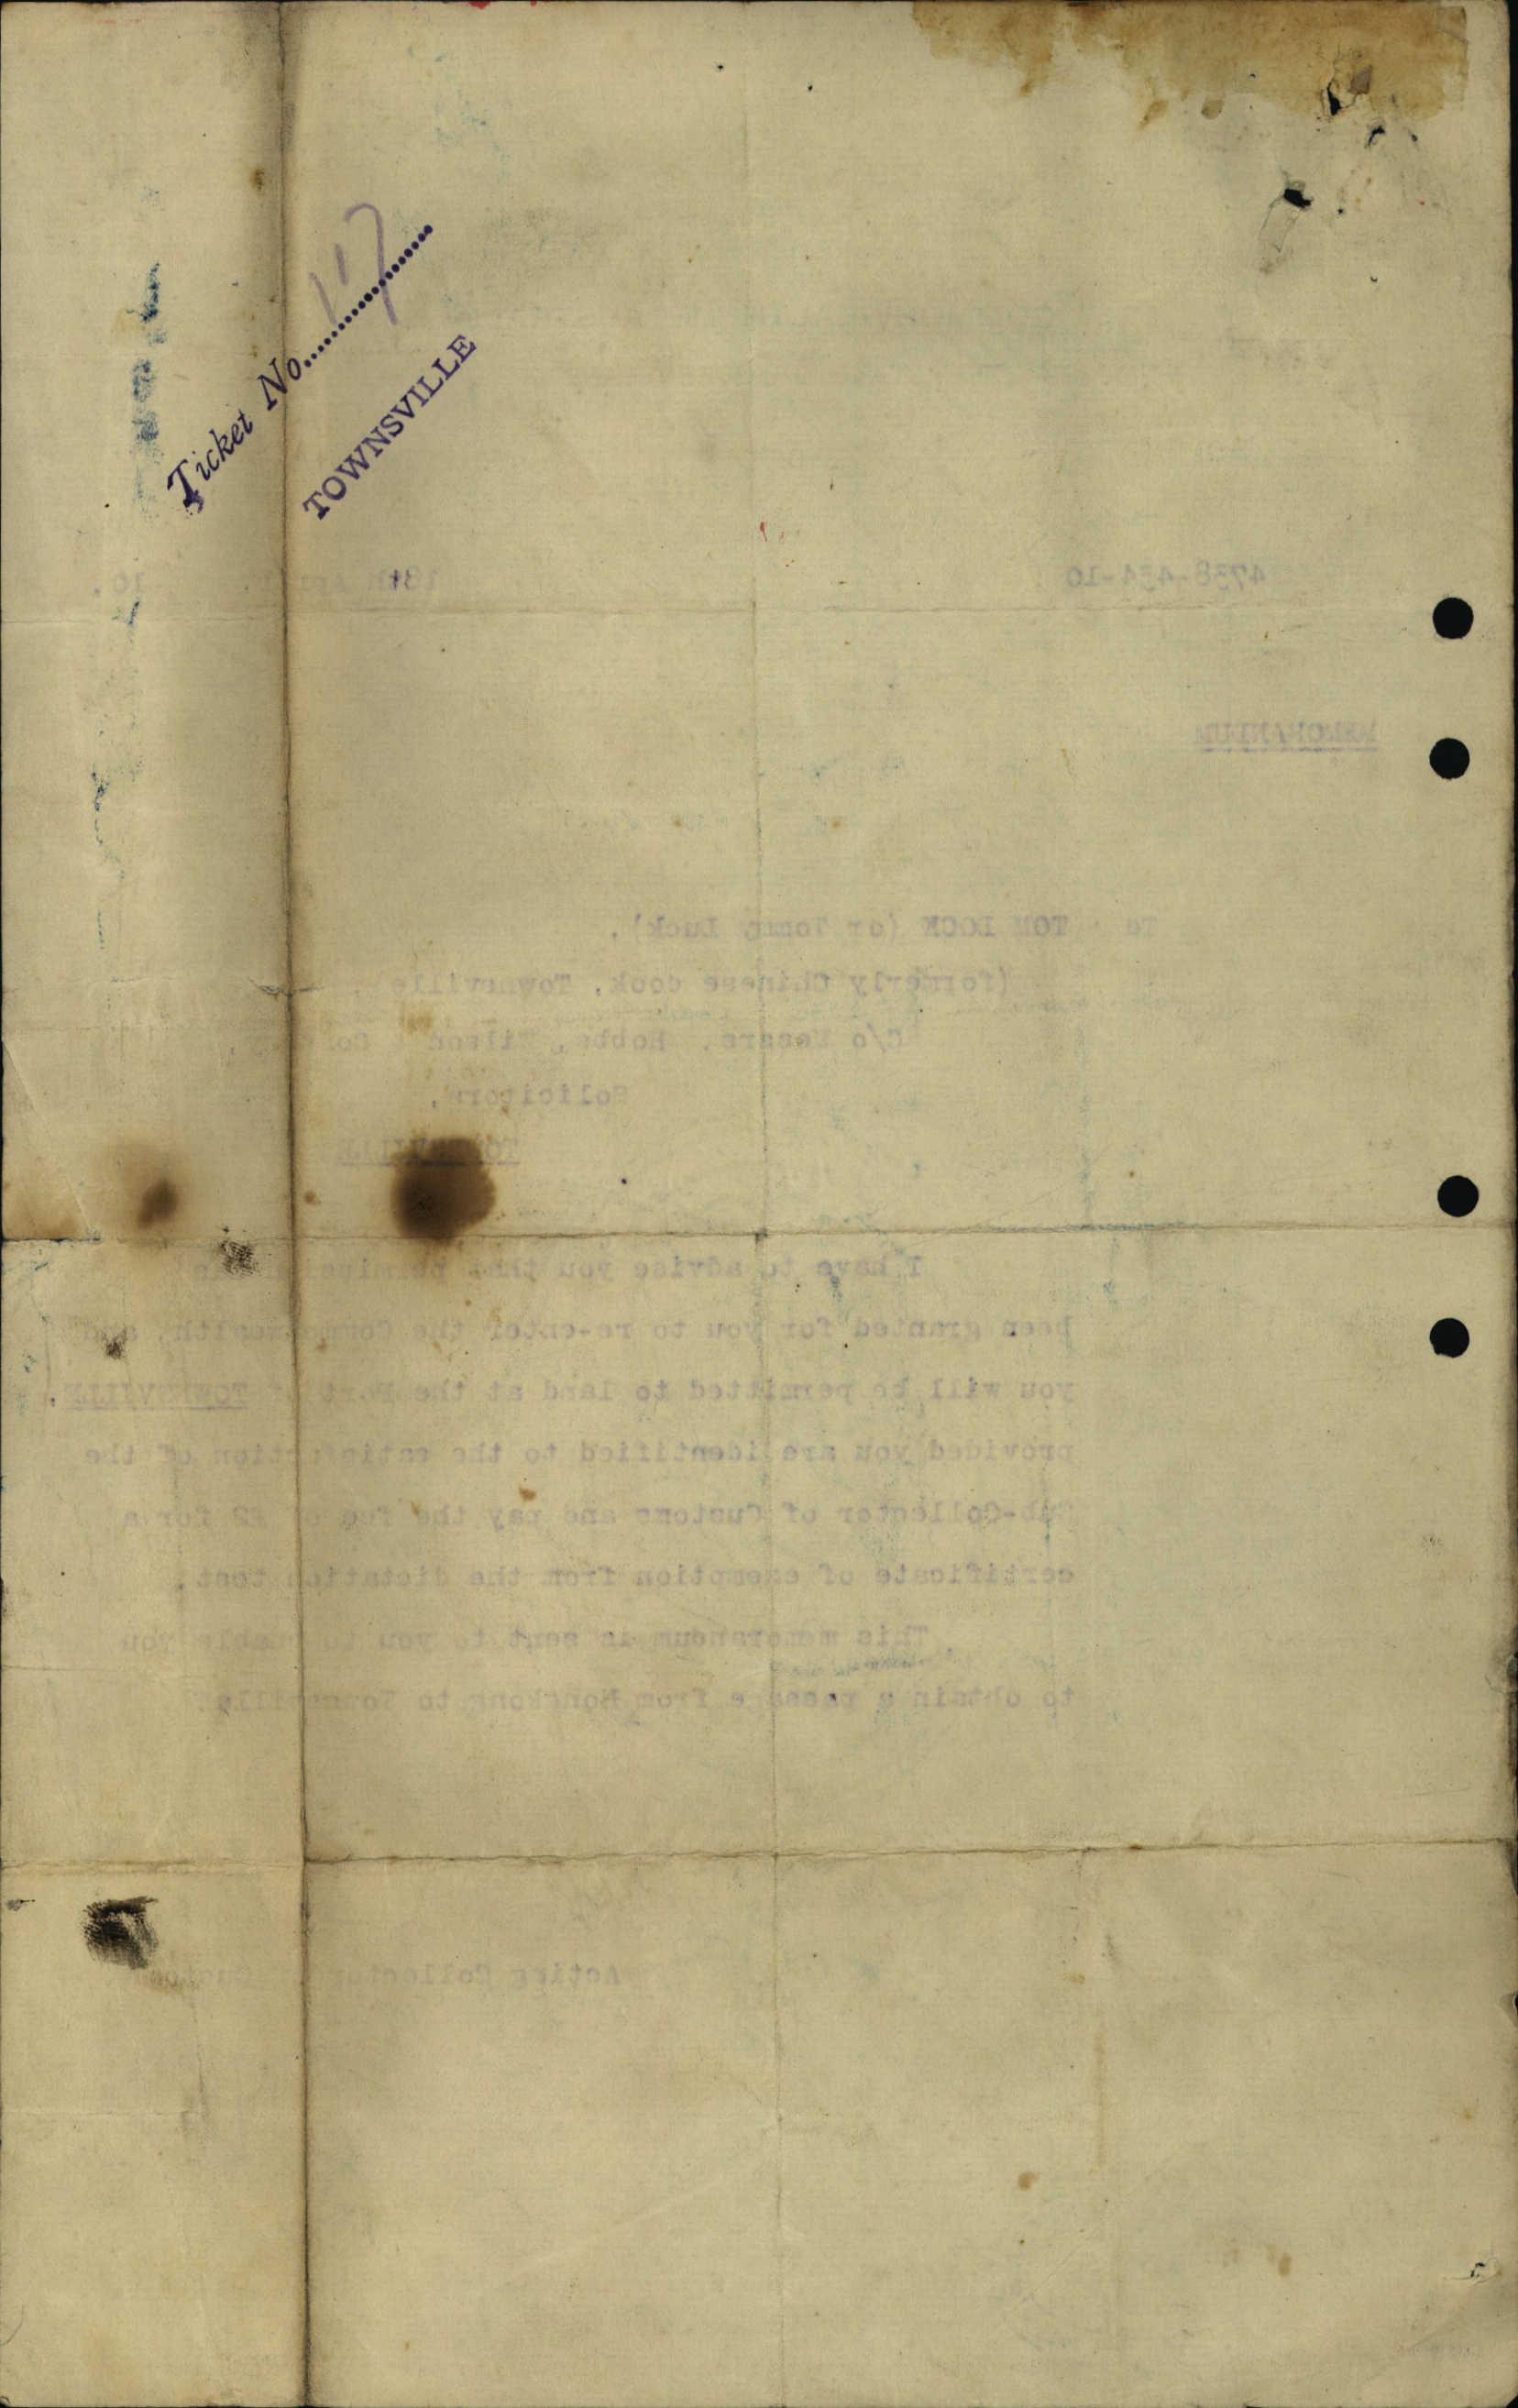 Ticket No. 117
TOWNSVILLE
4738-434-10
18th April. 10.
MEMORANDUM
To TOM LOCK (or Tommy Luck),
(formerly Chinese cook, Townsville).
C/o Messrs. Hobbs, Wilson & Company,
Solicitors,
TOWNSVILLE
I have to advise you that permission is
been granted for you to re-enter the Commonwealth, and
you will be permitted to land at the Port of TOWNSVILLE,
provided you are identified to the satisfaction of the
Sub-Collector of Customs and pay the fee of £2 for a
certificate of exemption from the dictation test.
This memorandum is sent to you to enable you
to obtain a passage from Hongkong to Townsville.
Acting Collector of Customs